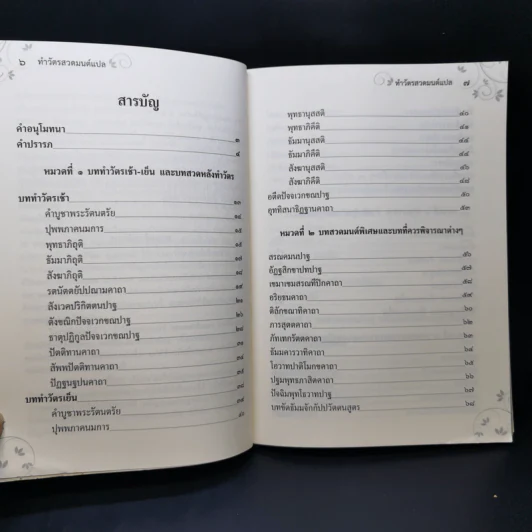 ๖ ทำวัตรสวดมนต์แปล
สารบัญ
คำอนุโมทนา ๓
คำปรารภ ๔
หมวดที่ ๑ บททำวัตรเช้า-เย็น และบทสวดหลังทำวัตร
บททำวัตรเช้า ๑๓
คำบูชาพระรัตนตรัย ๑๔
ปุพพภาคนมการ ๑๕
พุทธาภิถุติ ๑๕
ธัมมาภิถุติ ๑๗
สังฆาภิถุติ
รตนัตตยัปปณามคาถา
สังเวคปริกิตตนปาฐ
ตังขณิกปัจจเวกขณปาฐ
ธาตุปฏิกูลปัจจเวกขณปาฐ
ปัตติทานคาถา
สัพพปัตติทานคาถา
ปัฏฐนฐปนคาถา
บททำวัตรเย็น
คำบูชาพระรัตนตรัย
ปุพพภาคนมการ
ทำวัตรสวดมนต์แปล ๗
พุทธานุสสติ ๔๐
พุทธาภิคีติ
ธัมมานุสสติ ๔๔
ธัมมาภิคีติ ๔๕
สังฆานุสสติ
สังฆาภิคีติ ๔๘
อตีตปัจจเวกขณปาฐ
อุททิสนาธิฏฐานคาถา ๕๓
หมวดที่ ๒ บทสวดมนต์พิเศษและบทที่ควรพิจารณาต่างๆ
สรณคมนปาฐ ๕๖
อัฏฐสิกขาปทปาฐ ๕๗
เขมาเขมสรณทีปิกคาถา ๕๘
อริยธนคาถา ๕๙
ติลักขณาทิคาถา ๖๐
ภารสุตตคาถา
ภัทเทกรัตตคาถา
ธัมมคารวาทิคาถา ๖๔
โอวาทปาติโมกขคาถา
ปฐมพุทธภาสิตคาถา ๖๖
ปัจฉิมพุทโธวาทปาฐ ๖๗
บทขัดธัมมจักกัปปวัตตนสูตร ๖๘